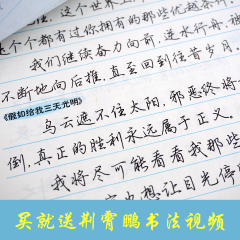 这个世
个个都有过你拥有的那些优越条
我们继续奋力向前,逆水行舟,被
不断地向后推,直至回到往昔岁月。
《假如给我三天光明》
乌云遮不住太阳,邪恶终将
倒,真正的胜利永远属于正义。
我将尽可能看看我那些
想让目光停
买就送荆霄鹏书法视频